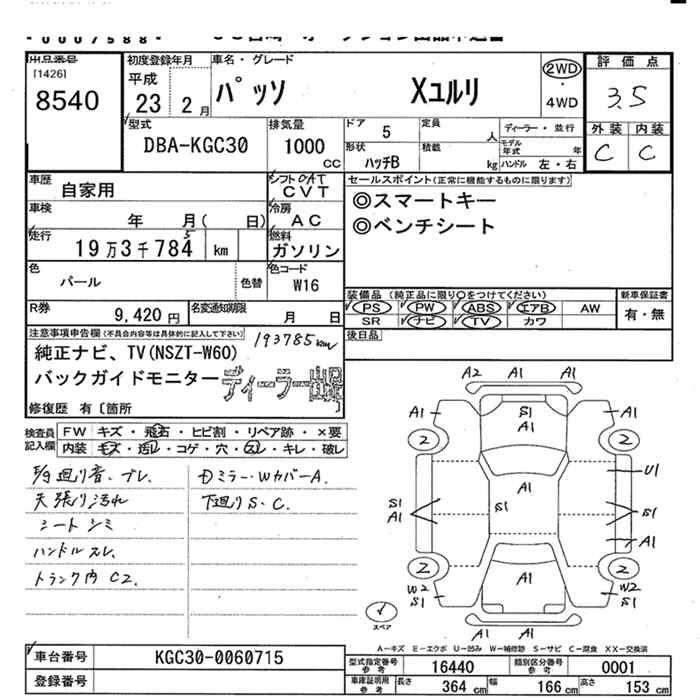 出品番号
[1426]
8540
初度登録年月
平成
23 2 月
車名・グレード
パッソ Xユルリ
2WD
・
4WD
評価点
3.5
外装 内装
C C
型式
DBA-KGC30
排気量
1000
CC
ドア 5
形状
ハッチB
定員 人
積載 kg
ディーラー・並行
モデル年式 年
ハンドル 左・右
車歴
自家用
シフト OAT
CVT
セールスポイント(正常に機能するものに限ります)
◎スマートキー
◎ベンチシート
車検
年 月( 日)
冷房
AC
走行
19万3千784 km
5
燃料
ガソリン
色
パール
色替
色コード
W16
装備品 (純正品に限り○をつけてください)
PS PW ABS エアB AW
SR ナビ TV カワ
新車保証書
有・無
R券
9,420 円
名変通知期限
月 日
後日品
注意事項申告欄(不具合内容等は具体的に記入して下さい)
193785km
純正ナビ、TV(NSZT-W60)
バックガイドモニター
ディーラー
修復歴 有〔箇所
〕
検査員
記入欄
FW キズ・飛石・ヒビ割・リペア跡・×要
内装 キズ・汚レ・コゲ・穴・スレ・キレ・破レ
天張り汚れ
シートシミ
ハンドルスレ、
トランク内 C2.
ミラー・WカバーA.
下廻りS.C.
A2 A1 A1
A1 S1 A1 A1
2 2
A1 U1
S1 A1 S1 S1
A1
2 A1 2
W2 S1 W2 S1
スペア
A1
A-キズ E-エクボ U-凹み W-補修跡 S-サビ C-腐食 XX-交換済
車台番号
KGC30-0060715
登録番号
型式指定番号
参考
16440
類別区分番号
参考
0001
車庫証明用
参考
長さ 364 cm
幅 166 cm
高さ 153 cm